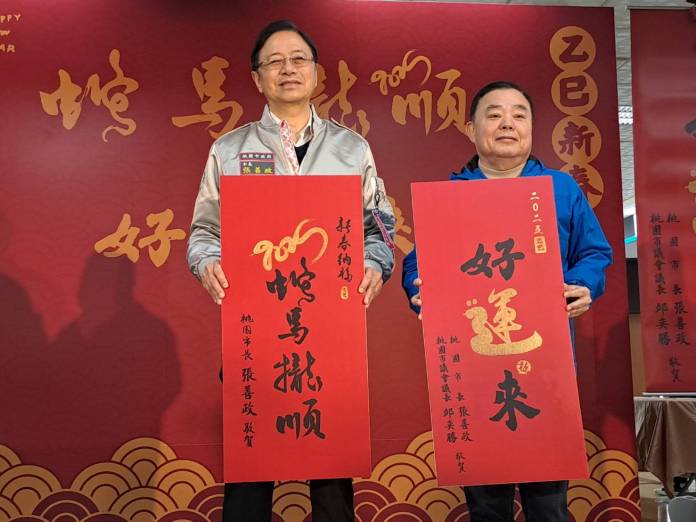 PPY
W
AR
2025
蛇馬攏順
乙巳新春
好 來
桃園市政府
市長
張善政
新春納福
2025
蛇馬攏順
桃園市長 張善政 敬賀
二〇二五 乙巳
好運來
桃園市長 張善政
桃園市議會議長 邱奕勝 敬賀
桃園市長 張善政
桃園市議會議長 邱奕勝 敬賀